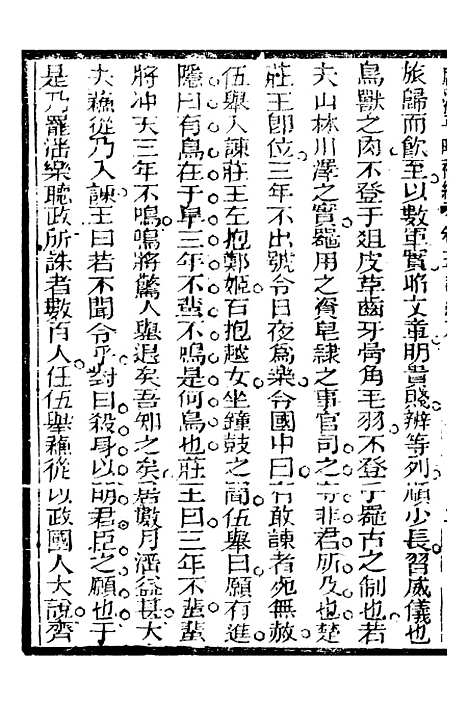 旅歸而飲至以數軍實昭文章明貴賤辨等列順少長習威儀也
鳥獸之肉不登于俎皮革齒牙骨角毛羽不登于器古之制也若
夫山林川澤之實器用之資皁隸之事官司之守非君所及也楚
莊王卽位三年不出號令日夜爲樂令國中曰有敢諫者死無赦
伍舉入諫莊王左抱鄭姬右抱越女坐鐘鼓之間伍舉曰願有進
隱曰有鳥在于阜三年不蜚不鳴是何鳥也莊王曰三年不蜚蜚
將冲天三年不鳴鳴將驚人舉退矣吾知之矣居數月滛益甚大
夫蘓從乃入諫王曰若不聞令乎對曰殺身以明君臣之願也于
是乃罷滛樂聽政所誅者數百人任伍舉蘓從以政國人大說齊